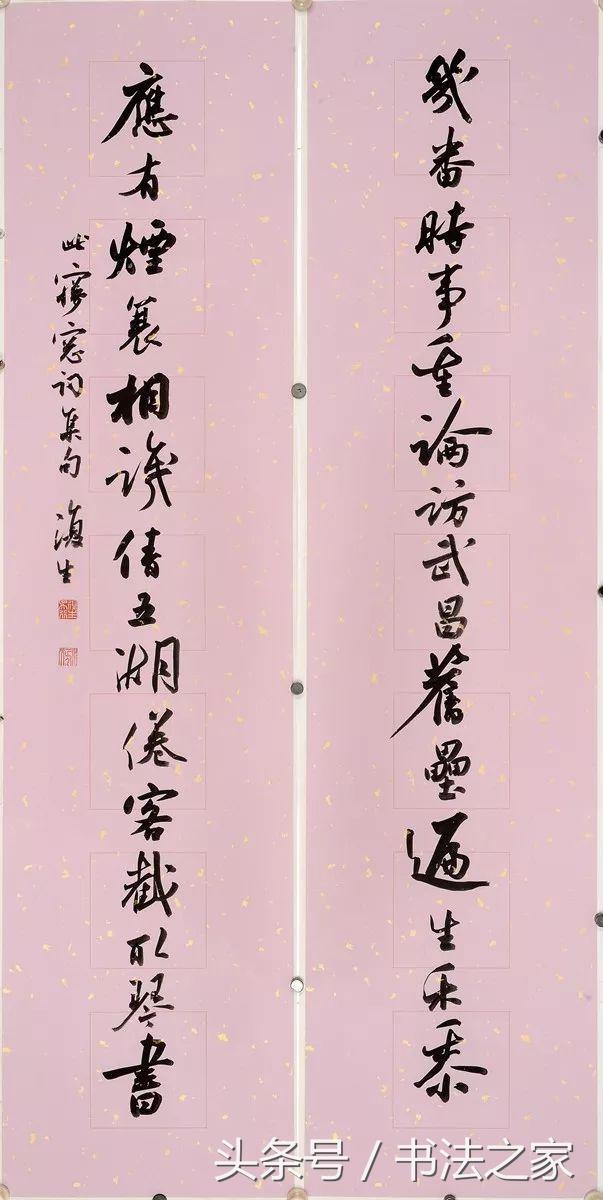 幾番時事重論訪武昌舊壘遍生禾黍
應有煙蓑相識倩五湖倦客載取琴書
此㝱窓詞集句 復生
头条号 / 书法之家